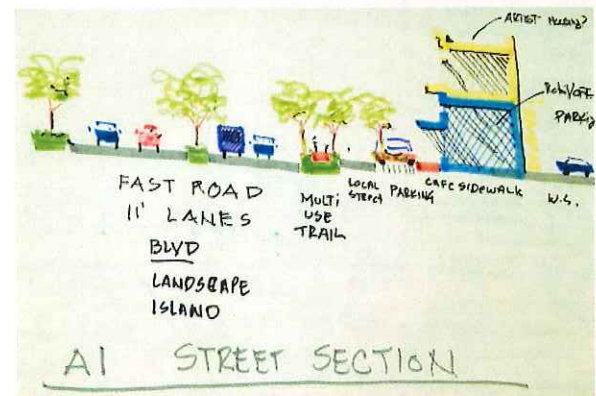 ARTIST HOUSING?
PARKING
FAST ROAD
11' LANES
BLVD
LANDSCAPE
ISLAND
MULTI
USE
TRAIL
LOCAL
STREET
PARKING
CAFE SIDEWALK
W.S.
A1 STREET SECTION